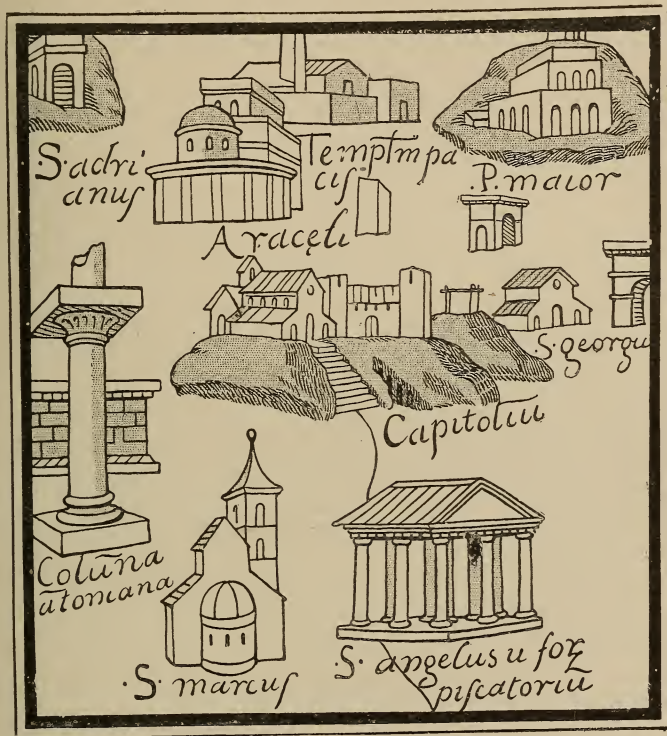 ·S· adri
anuſ
Templmpa
ciſ
.P. maior
Aracęli
·S· georgu
Capitoliū
Colūna
ātoniana
·S· marcuſ
·S· angelus u for
piſcatoriū